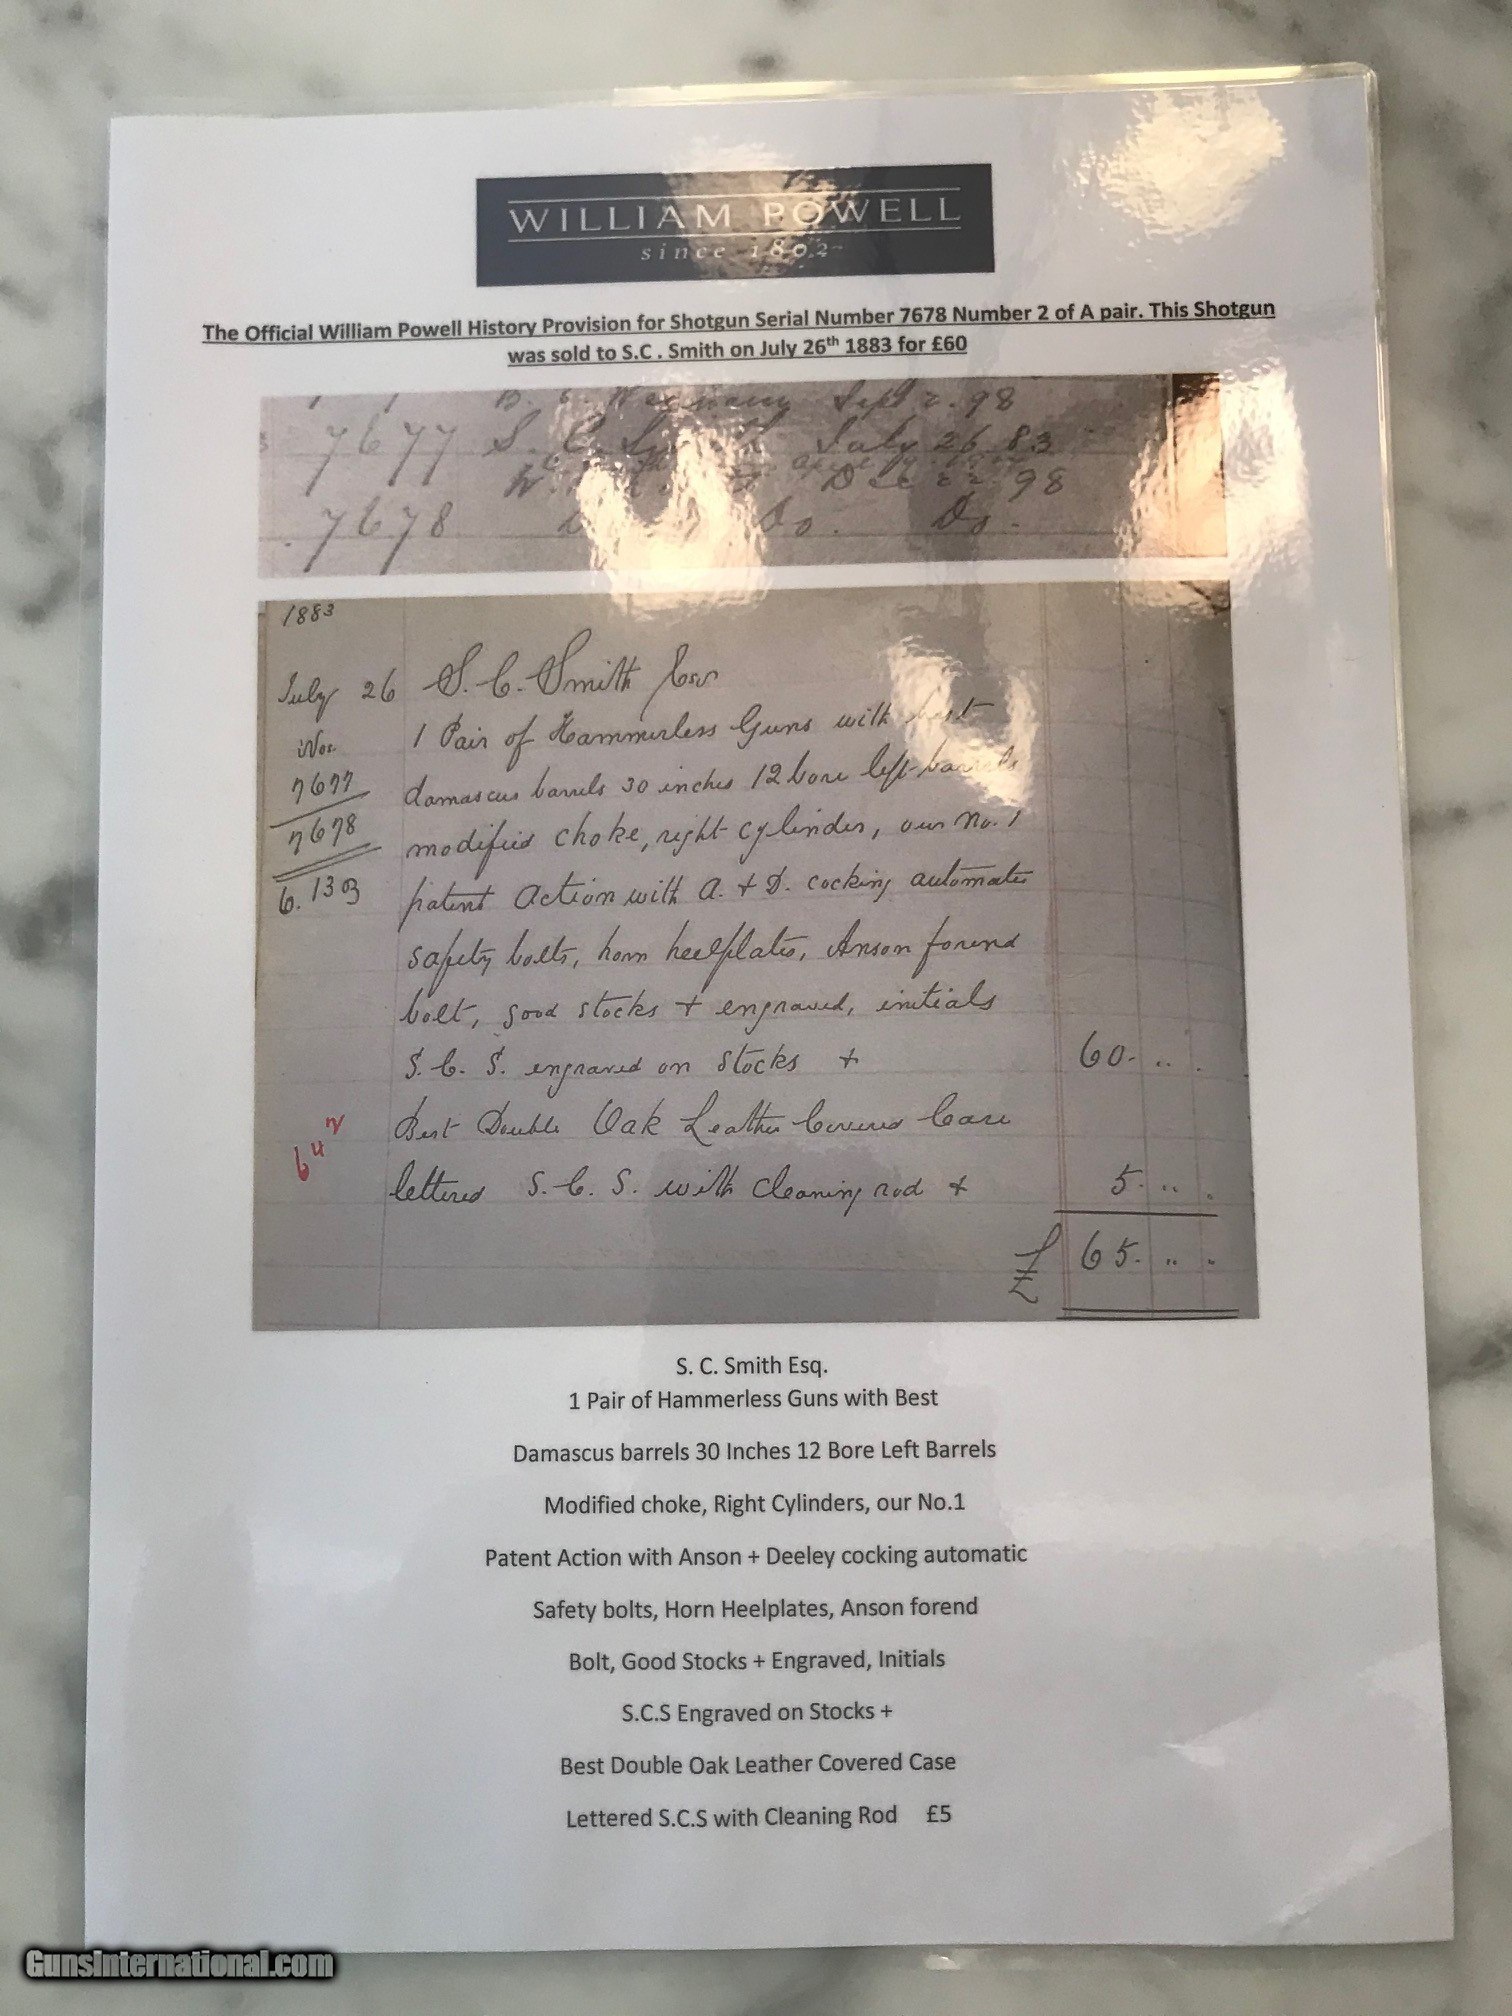 WILLIAM POWELL
since 1802
The Official William Powell History Provision for Shotgun Serial Number 7678 Number 2 of A pair. This Shotgun
was sold to S.C . Smith on July 26th 1883 for £60
Sept 2. 98
7677 S. C. Smith July 26 83
Dec 22. 98
7678 Do Do. Do.
1883
July 26 S. C. Smith Esq
Nos. 1 Pair of Hammerless Guns with best
7677 damascus barrels 30 inches 12 bore left barrels
7678 modified choke, right cylinder, our No. 1
6.1303 patent action with A. + D. cocking automatic
safety bolts, horn heelplates, Anson forend
bolt, good stocks + engraved, initials
S. C. S. engraved on stocks + 60. " "
Best Double Oak Leather Covered Case
642
lettered S. C. S. with cleaning rod + 5. " "
£ 65. " "
S. C. Smith Esq.
1 Pair of Hammerless Guns with Best
Damascus barrels 30 Inches 12 Bore Left Barrels
Modified choke, Right Cylinders, our No.1
Patent Action with Anson + Deeley cocking automatic
Safety bolts, Horn Heelplates, Anson forend
Bolt, Good Stocks + Engraved, Initials
S.C.S Engraved on Stocks +
Best Double Oak Leather Covered Case
Lettered S.C.S with Cleaning Rod £5
GunsInternational.com